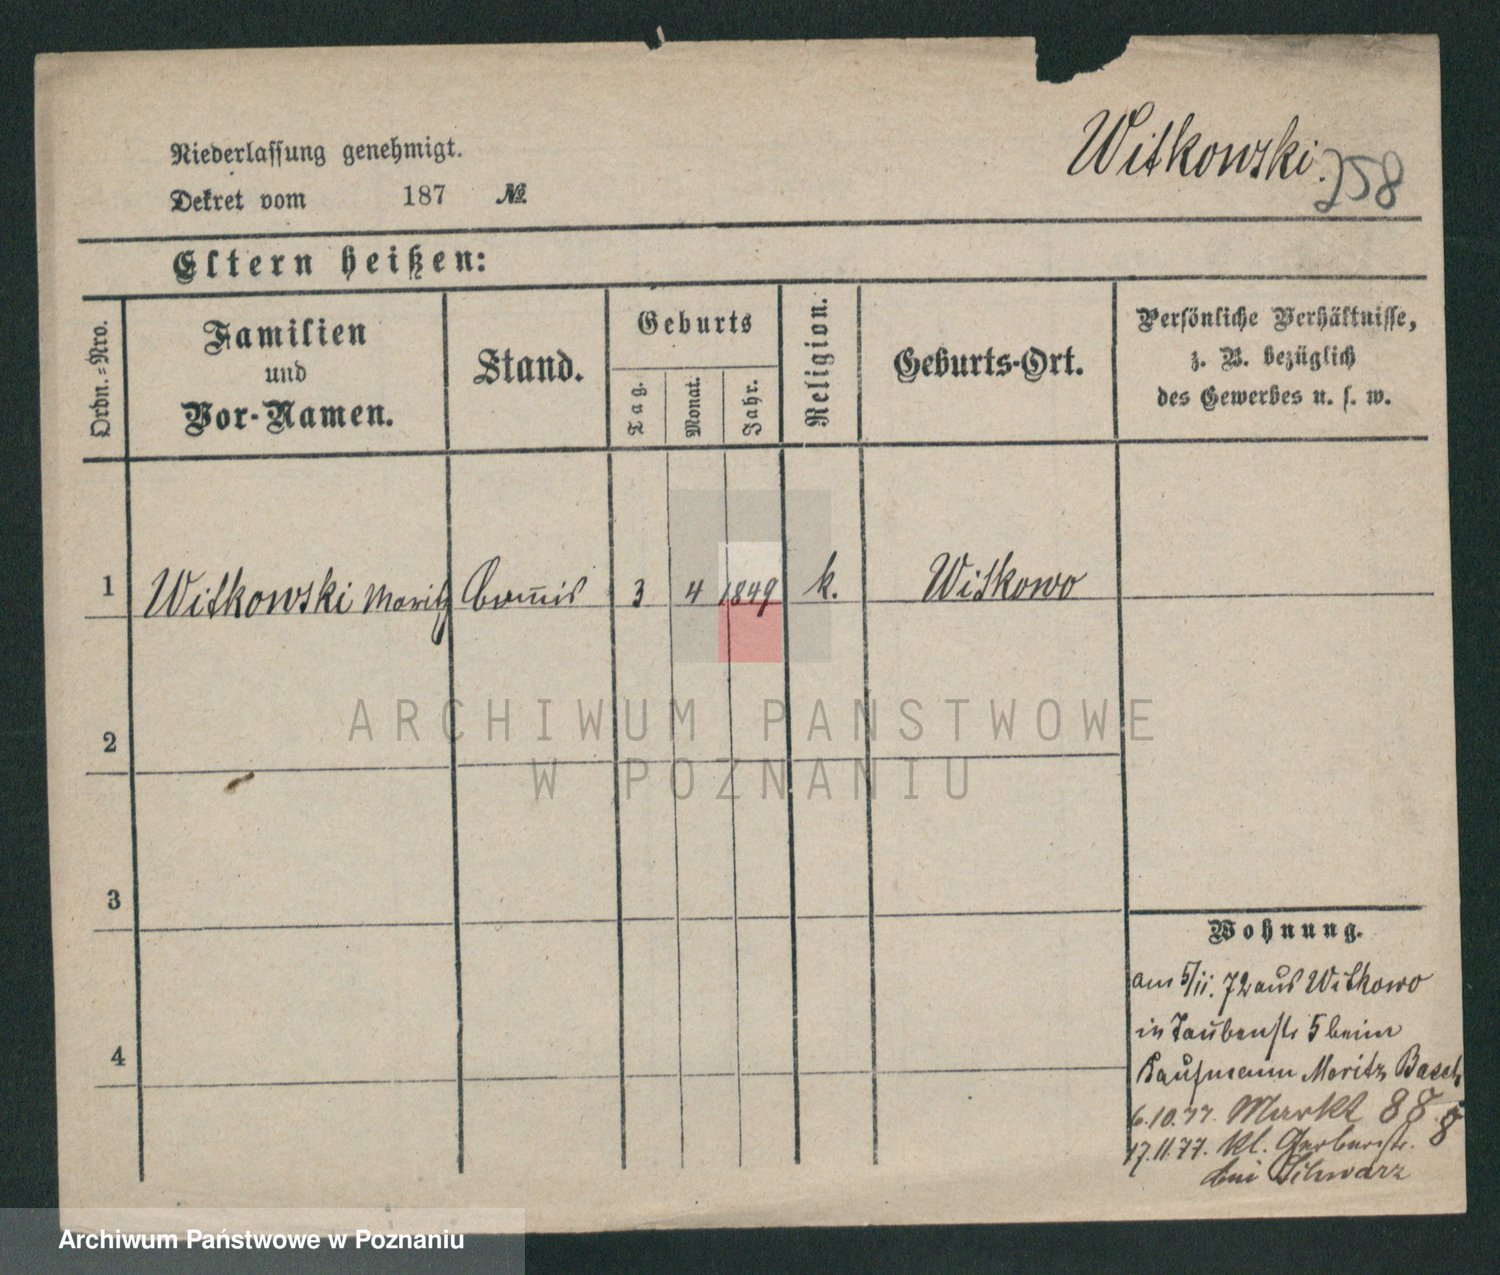 Witkowski. 258
Niederlassung genehmigt.
Dekret vom 187 №
Eltern heißen:
Ordn.-Nro.
Familien
und
Vor-Namen.
Stand.
Geburts
Tag.
Monat.
Jahr.
Religion.
Geburts-Ort.
Persönliche Verhältnisse,
z. B. bezüglich
des Gewerbes u. s. w.
1 Witkowski Moritz Com̄is 3 4 1849 k. Witkowo
2
3
4
Wohnung.
am 5/11. 72 aus Witkowo
in Taubenstr 5 beim
Kaufmann Moritz Basch
6.10.77. Markt 88.
17.11.77. kl. Gerberstr. 8
bei Schwarz
ARCHIWUM PAŃSTWOWE
W POZNANIU
Archiwum Państwowe w Poznaniu